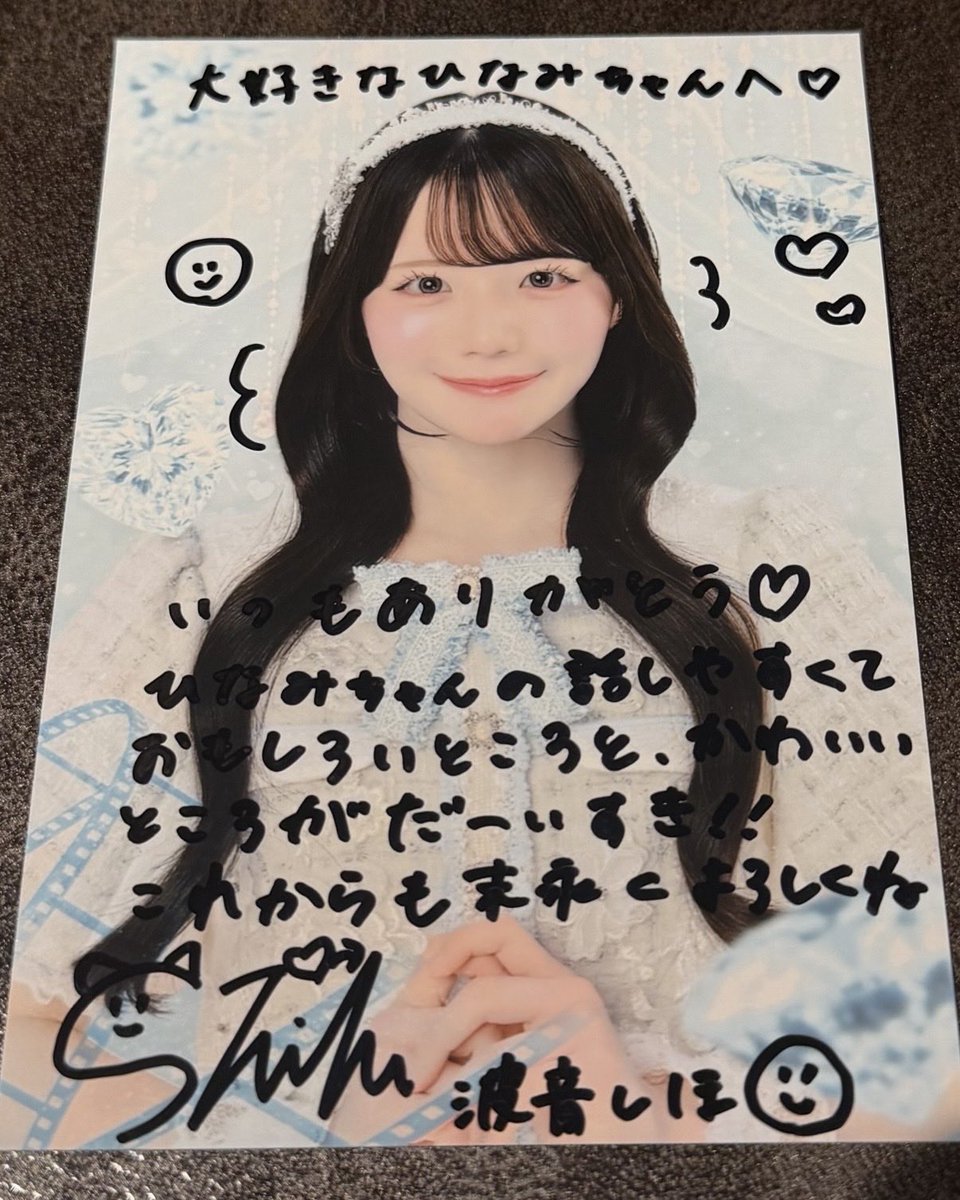 大好きなひなみちゃんへ♡
いつもありがとう♡
ひなみちゃんの話しやすくて
おもしろいところと、かわいい
ところがだーいすき!!
これからも末永くよろしくね
Shiho
波音しほ